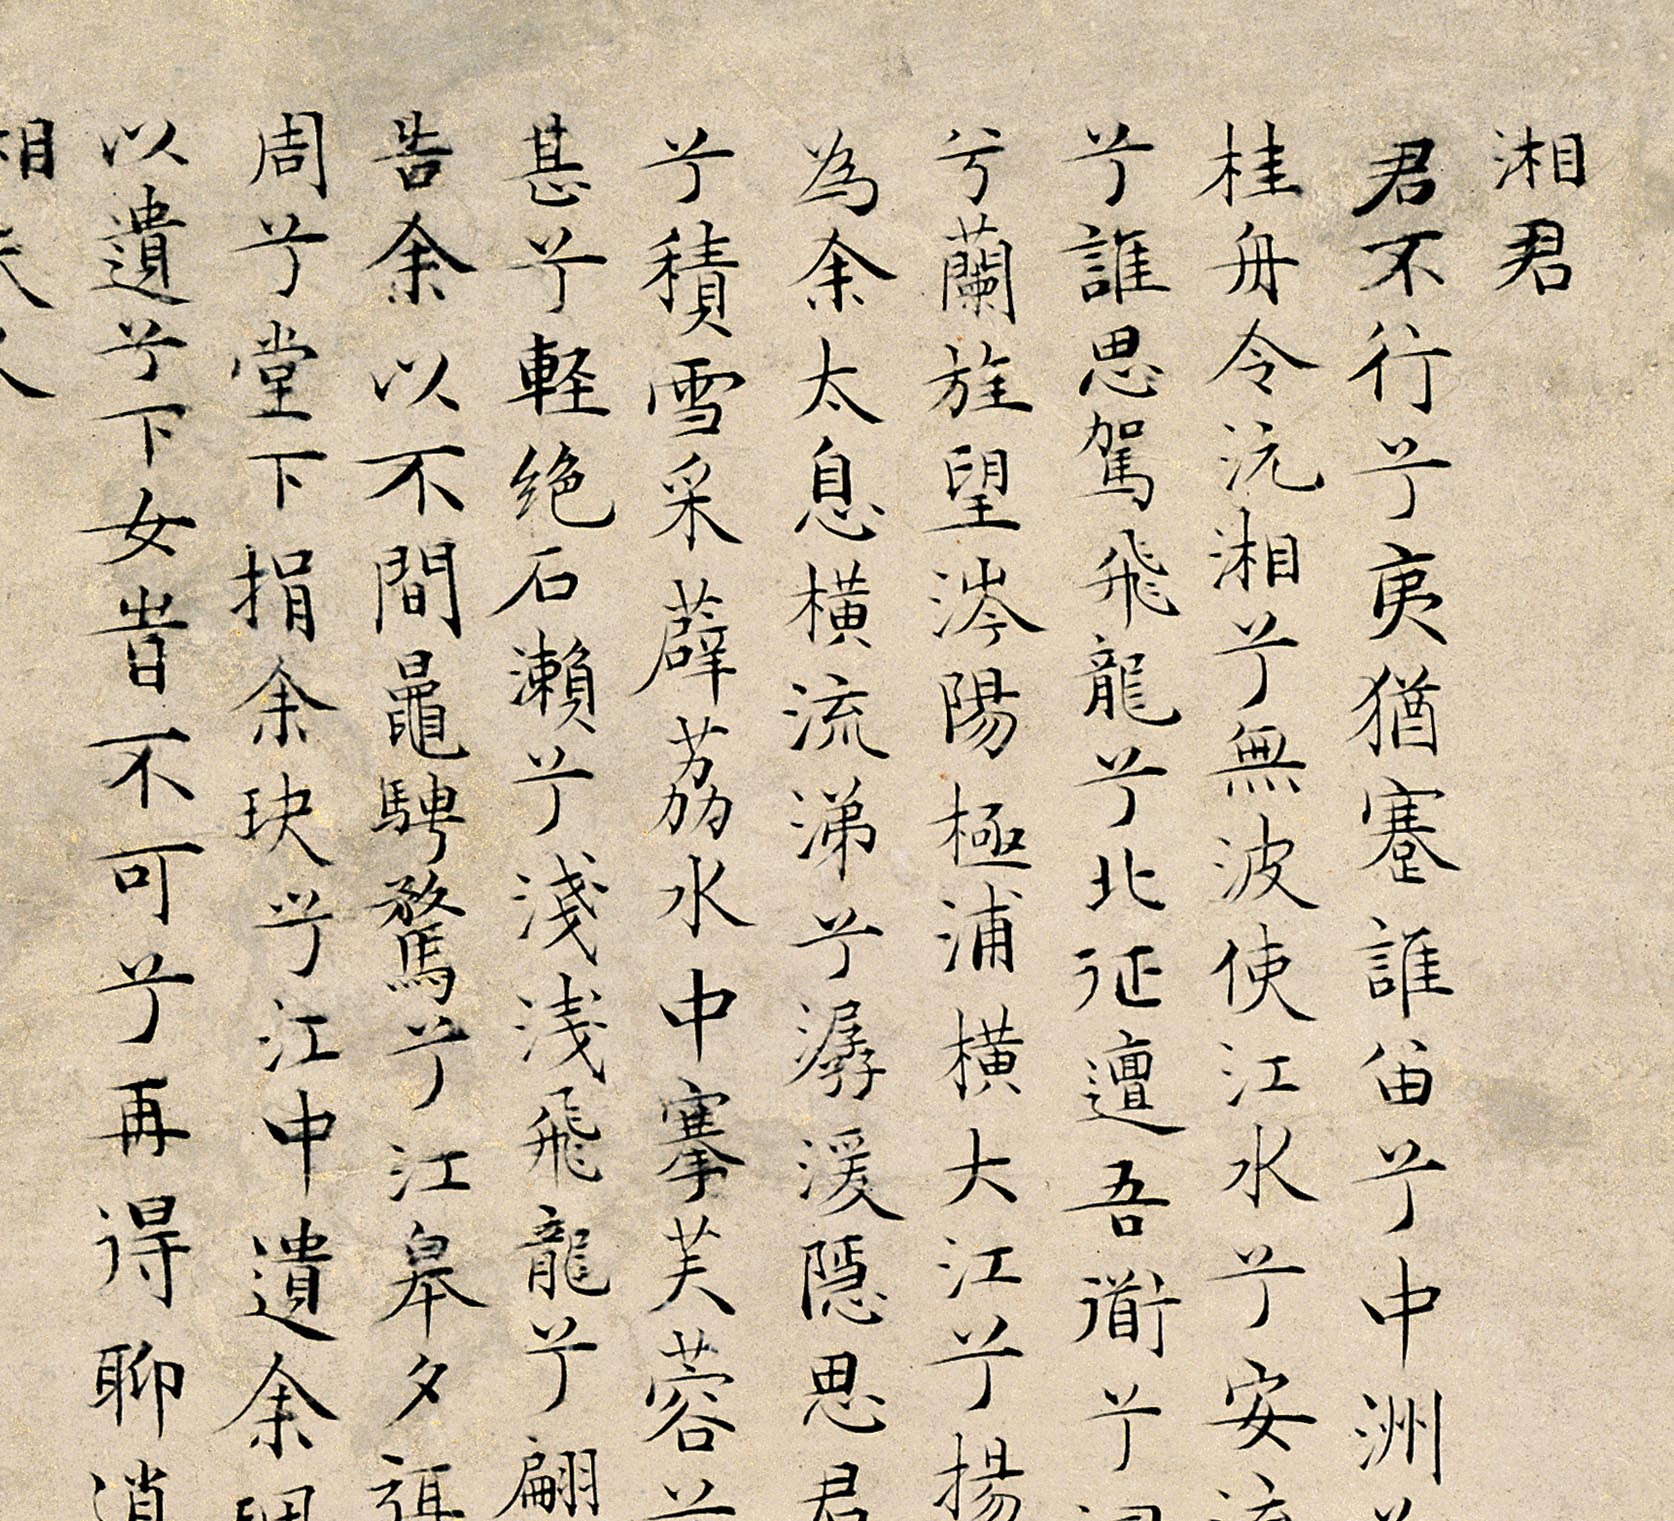 湘君
君不行兮夷猶蹇誰留兮中洲
桂舟令沅湘兮無波使江水兮安流
兮誰思駕飛龍兮北征邅吾衟兮洞
兮蘭旌望涔陽極浦橫大江兮揚
為余太息橫流涕兮潺湲隱思君
兮積雪采薜荔水中搴芙蓉兮
甚兮輕絕石瀨兮淺淺飛龍兮翩
告余以不間鼂騁騖兮江皋夕弭
周兮堂下捐余玦兮江中遺余珮
以遺兮下女旹不可兮再得聊逍
湘夫人